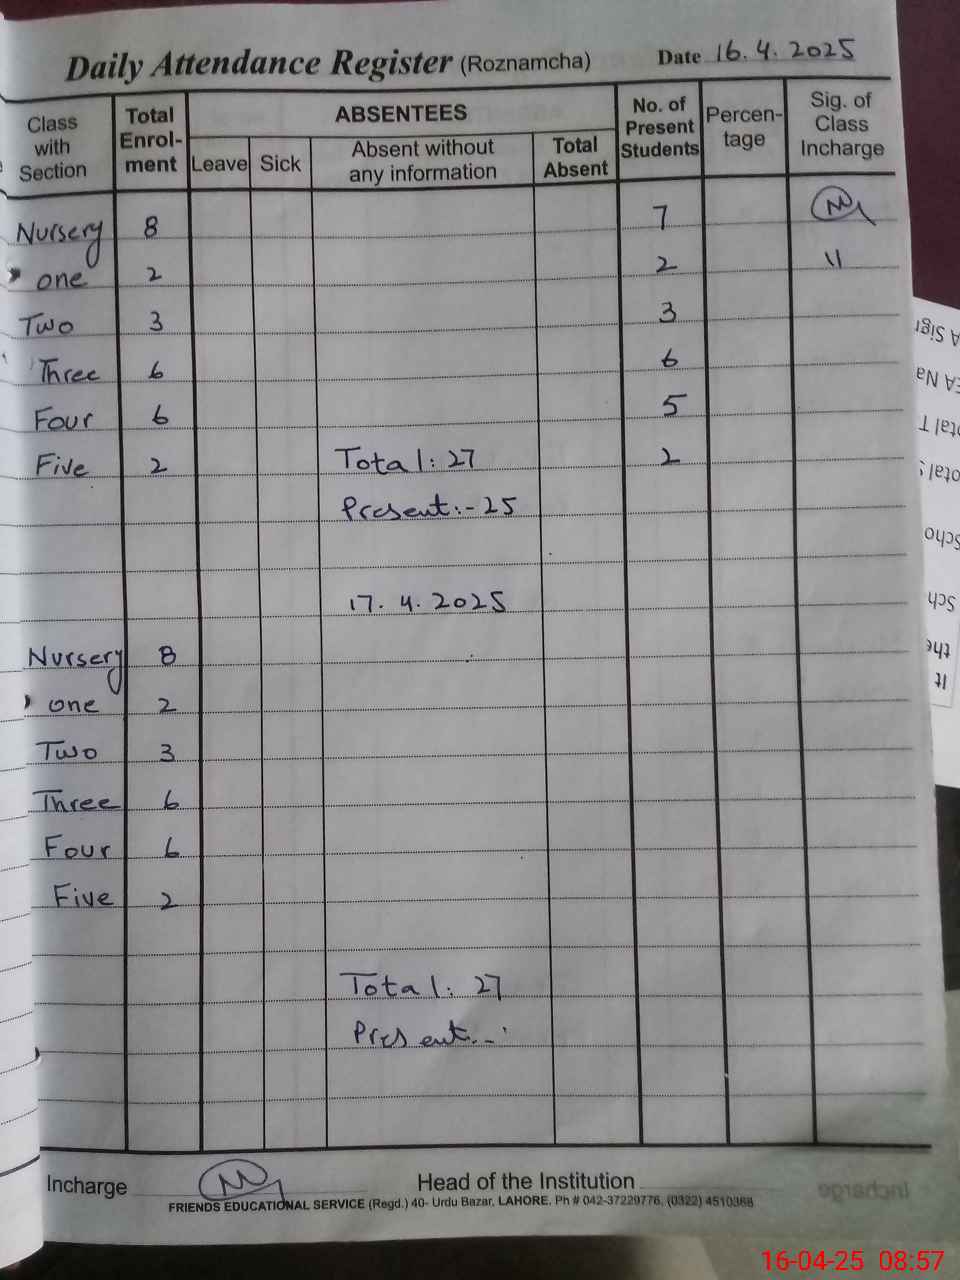 Daily Attendance Register (Roznamcha) Date 16.4.2025
Class with Section Total Enrol-ment ABSENTEES No. of Present Students Percen-tage Sig. of Class Incharge
Leave Sick Absent without any information Total Absent
Nursery 8 7
one 2 2 11
Two 3 3
Three 6 6
Four 6 5
Five 2 Total: 27 2
Present:- 25
17. 4. 2025
Nursery 8
one 2
Two 3
Three 6
Four 6
Five 2
Total: 27
Present:-
Incharge Head of the Institution
FRIENDS EDUCATIONAL SERVICE (Regd.) 40- Urdu Bazar, LAHORE. Ph # 042-37229776, (0322) 4510368
16-04-25 08:57